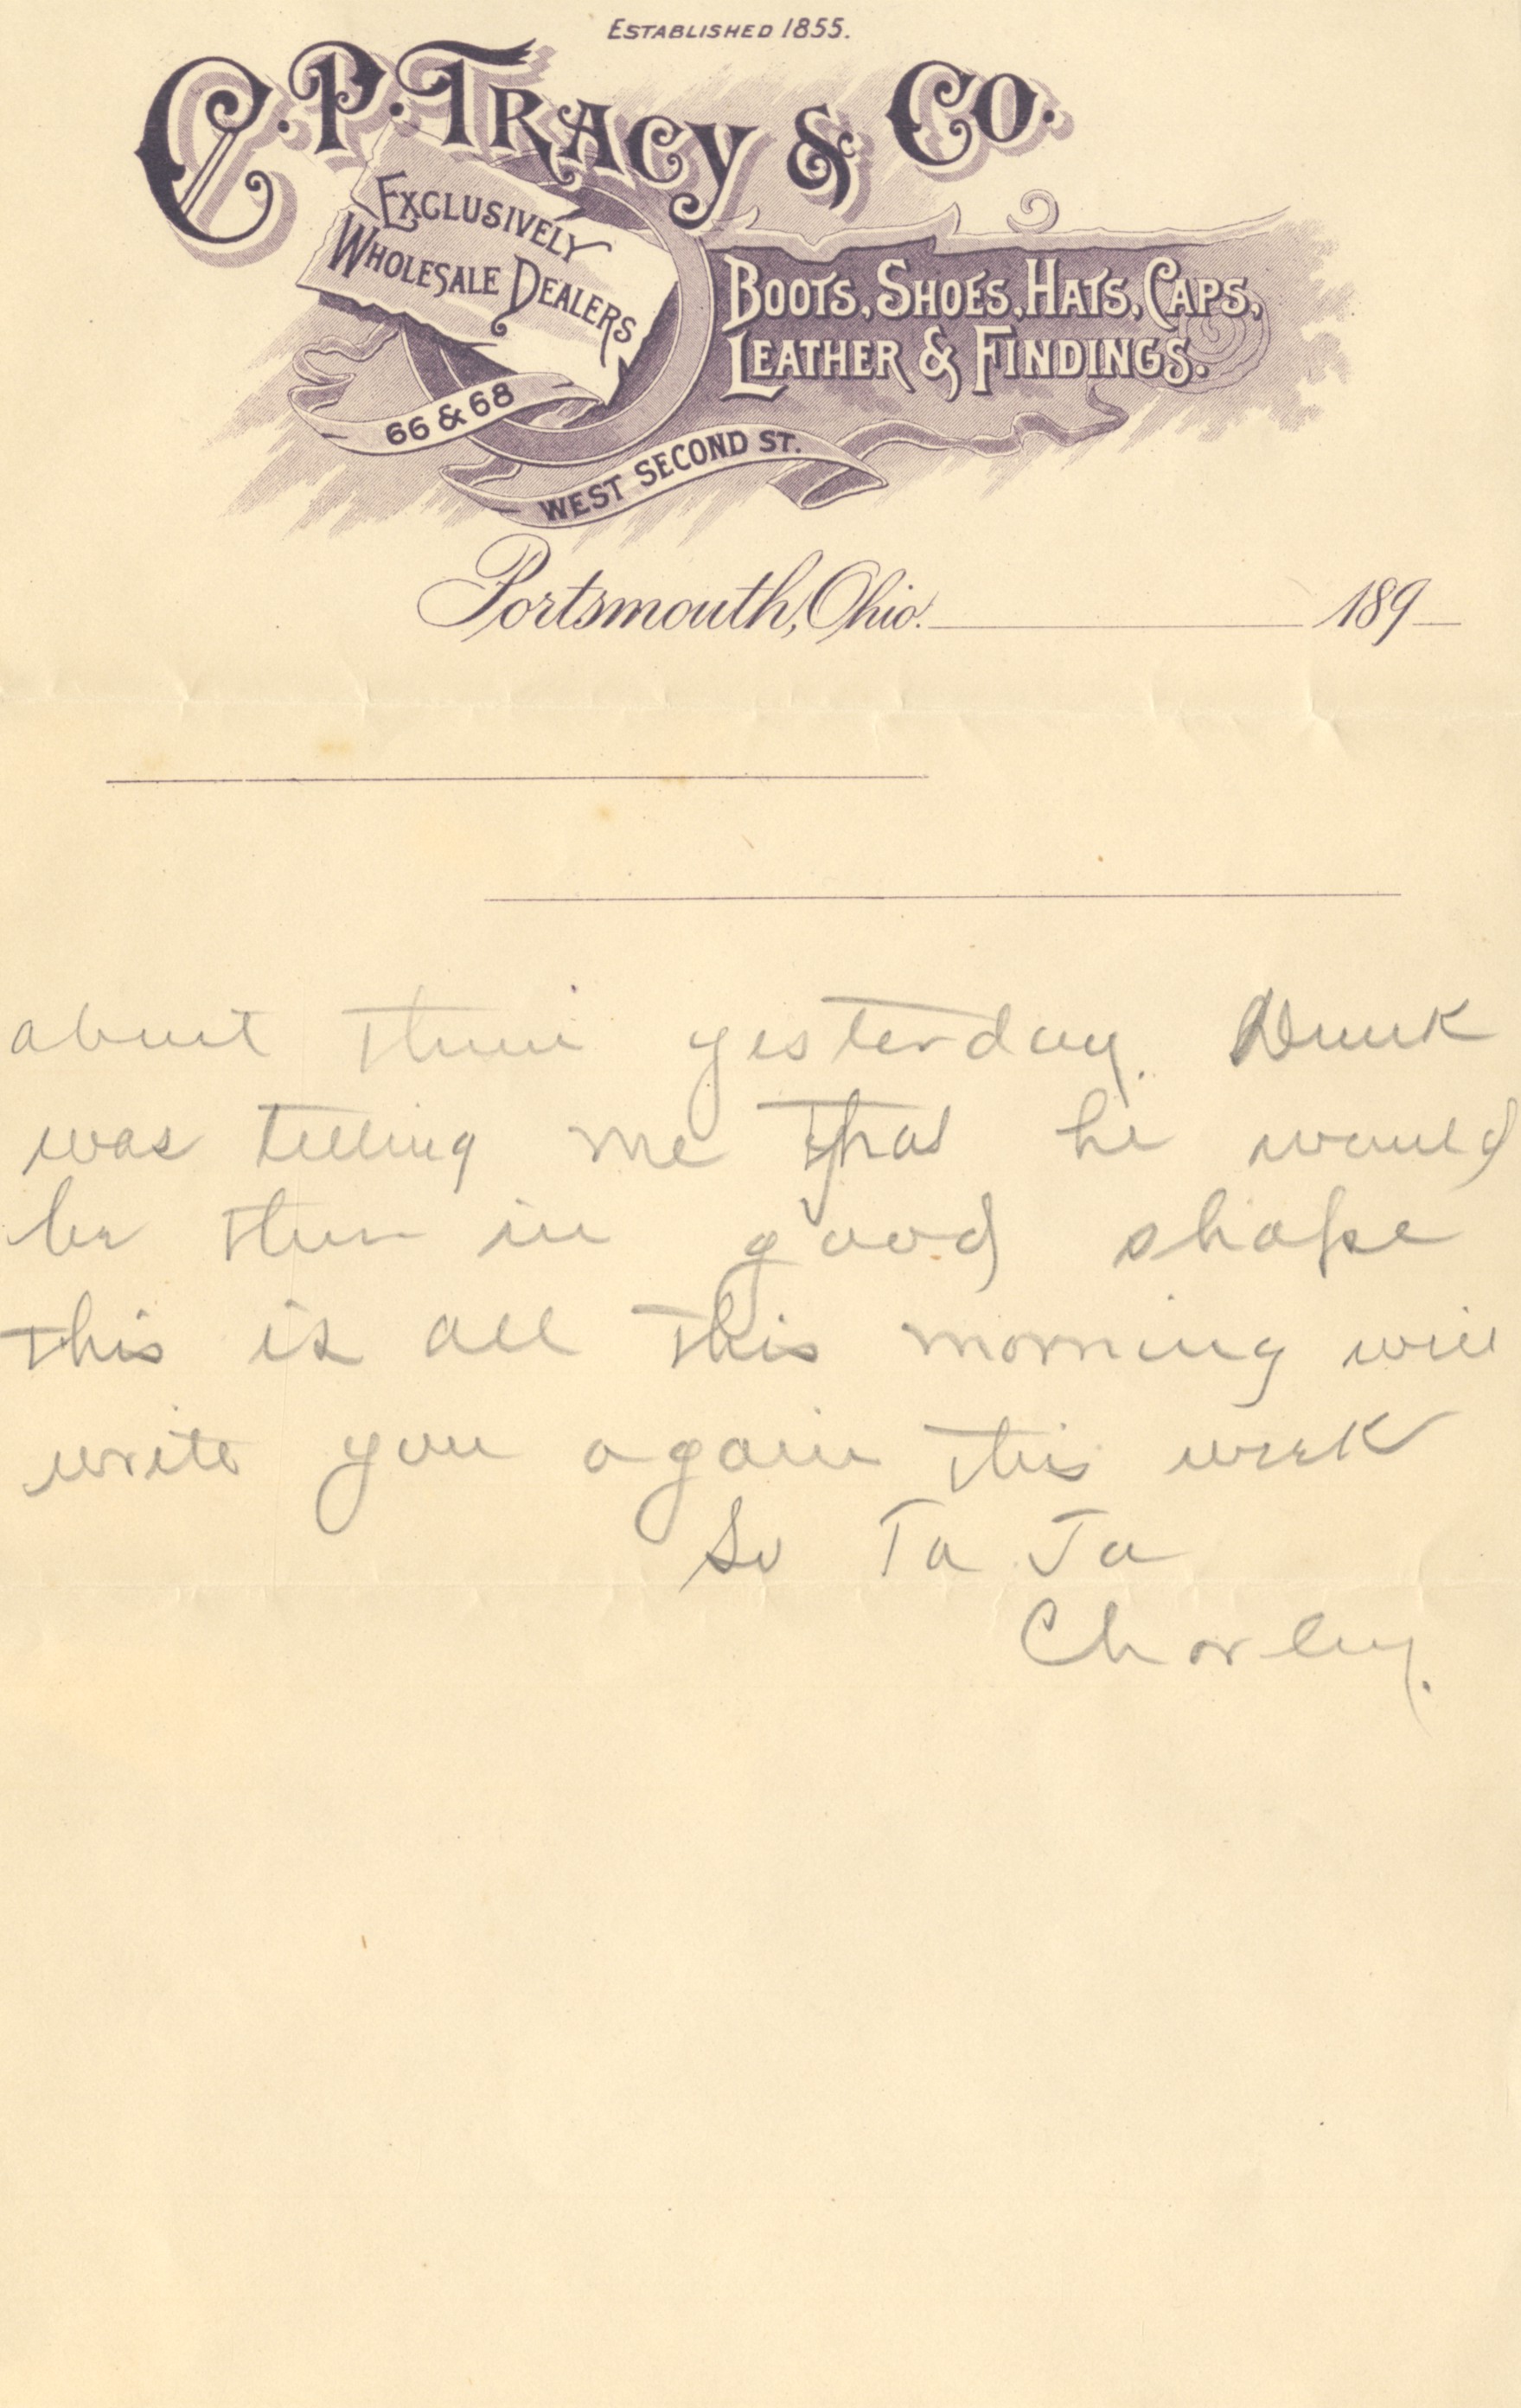 ESTABLISHED 1855.
C. P. TRACY & CO.
EXCLUSIVELY
WHOLESALE DEALERS
BOOTS, SHOES, HATS, CAPS,
LEATHER & FINDINGS.
66 & 68
WEST SECOND ST.
Portsmouth, Ohio. 189
about them yesterday.
was telling me that he would
be there in good shape
this is all this morning will
write you again this week
So Ta Ta
Charley.